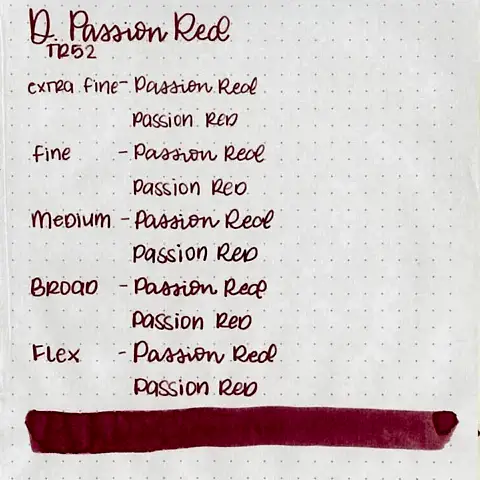 D. Passion Red
TR52
extra fine - Passion Red
Passion Red
fine - Passion Red
Passion Red
Medium - Passion Red
Passion Red
Broad - Passion Red
Passion Red
Flex - Passion Red
Passion Red